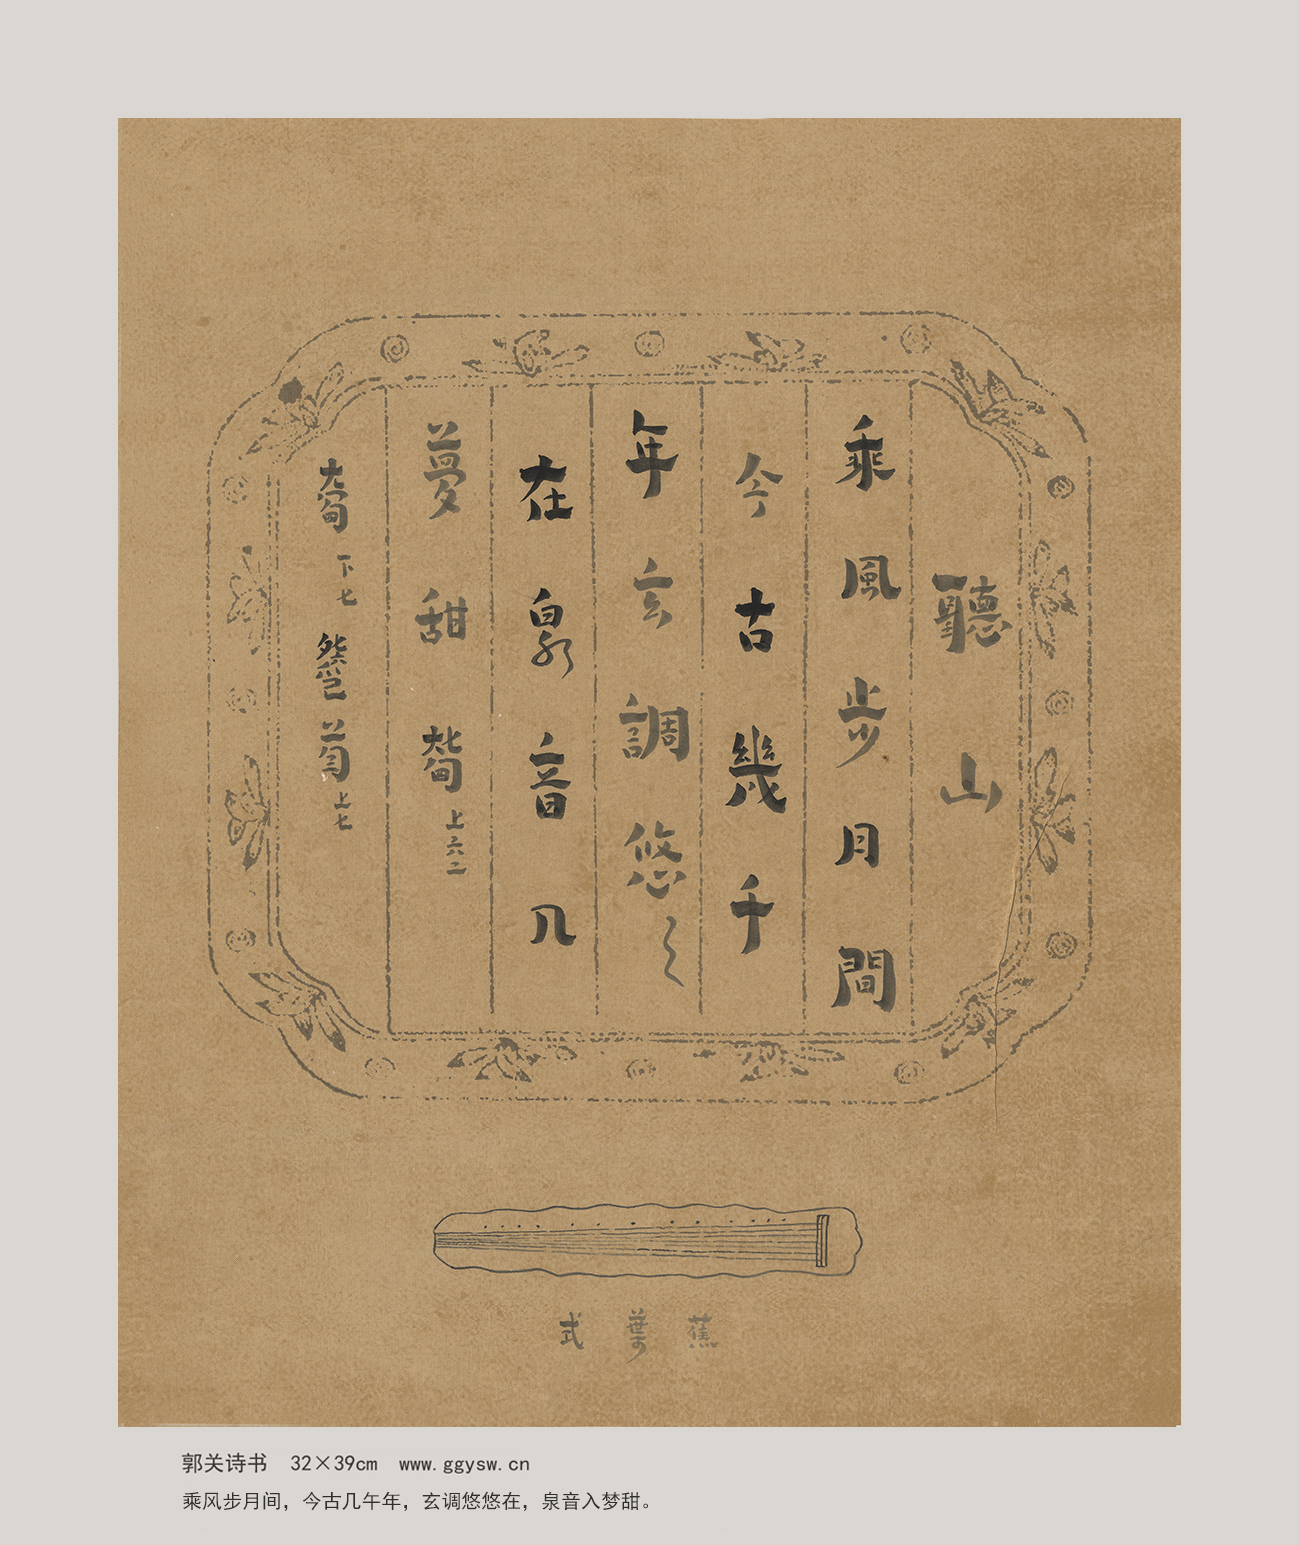 聽山
乘風步月間
今古幾千
年玄調悠〻
在泉音入
夢甜 上六二
下七 上七
蕉葉式
郭关诗书 32×39cm www.ggysw.cn
乘风步月间，今古几午年，玄调悠悠在，泉音入梦甜。